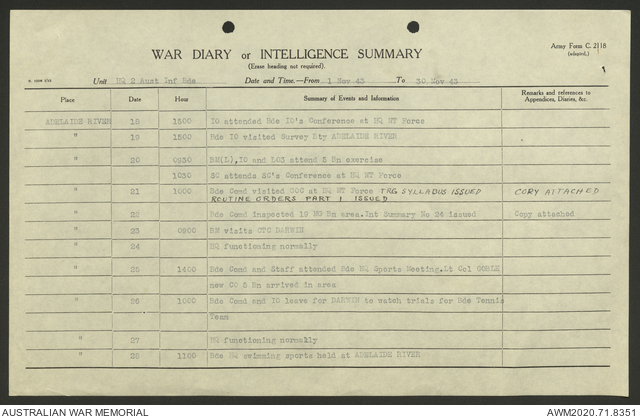 Army Form C. 2118
(adapted.)
WAR DIARY or INTELLIGENCE SUMMARY
(Erase heading not required).
Unit HQ 2 Aust Inf Bde Date and Time.—From 1 Nov 43 To 30 Nov 43
Place Date Hour Summary of Events and Information Remarks and references to
Appendices, Diaries, &c.
ADELAIDE RIVER 18 1500 IO attended Bde IO's Conference at HQ NT Force
" 19 1500 Bde IO visited Survey Bty ADELAIDE RIVER
" 20 0930 BM(L), IO and LO3 attend 3 Bn exercise
1030 SC attends SC's Conference at HQ NT Force
" 21 1000 Bde Comd visited GOC at HQ NT Force TRG SYLLABUS ISSUED COPY ATTACHED
ROUTINE ORDERS PART 1 ISSUED
" 22 Bde Comd inspected 19 MG Bn area.Int Summary No 24 issued Copy attached
" 23 0900 BM visits CTC DARWIN
" 24 HQ functioning normally
" 25 1400 Bde Comd and Staff attended Bde HQ Sports Meeting.Lt Col
new CO 5 Bn arrived in area
" 26 1000 Bde Comd and IO leave for DARWIN to watch trials for Bde Tennis
Team
" 27 HQ functioning normally
" 28 1100 Bde HQ swimming sports held at ADELAIDE RIVER
AUSTRALIAN WAR MEMORIAL AWM2020.71.8351